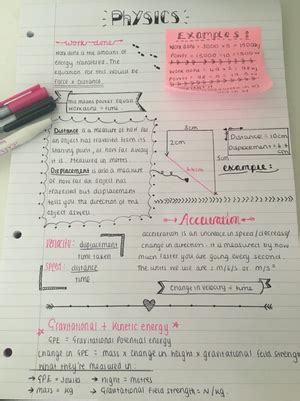 Physics
work done
Examples:
Work done is the amount of
energy transferred. The
equation for this would be
Force x distance.
This means power equals
work done ÷ time
Distance is a measure of how far
an object has travelled from its
starting point, or how far away
it is. Measured in metres.
Displacement is also a measure
of how far an object has
travelled but displacement
tells you the direction of the
object aswell.
8cm
2cm
Distance = 10cm
example:
velocity: displacement
time taken
speed: distance
time
Acceleration
acceleration is an increase in speed / decrease /
change in direction. It is measured by how
much faster you are going every second.
The units we use are : m/s/s or m/s²
Change in velocity ÷ time
Gravitational + Kinetic energy
GPE = Gravitational Potential energy
Change in GPE = mass x change in height x gravitational field strength
what they're measured in:
→ GPE = Joules → height = metres
→ mass = kg → Gravitational field strength = N/kg.